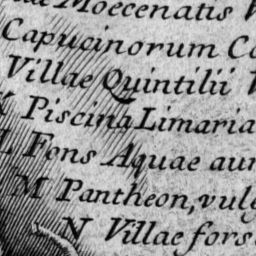 Moecenatis
Capucinorum
Villae Quintilii
K Piscina Limaria
L Fons Aquae
M Pantheon, vulg
N Villae fors